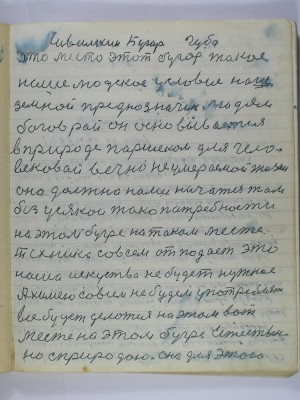 Чивилкин Бугор Губа
это место этот бугор такое
наше людское условие на
земной предназначен людям
богов рай он основывается
в природе паршеком для чело-
вековай вечно неумераемой жизни
она должно нами начатся там
без усякой тако патребности
на этом бугре на таком месте.
техника совсем отподает это
наша искуства не будет нужное
А химею совсем не будем употреблят
все будет делотся на этом вот
месте на этом бугре Естествен-
но с природою. она для этого